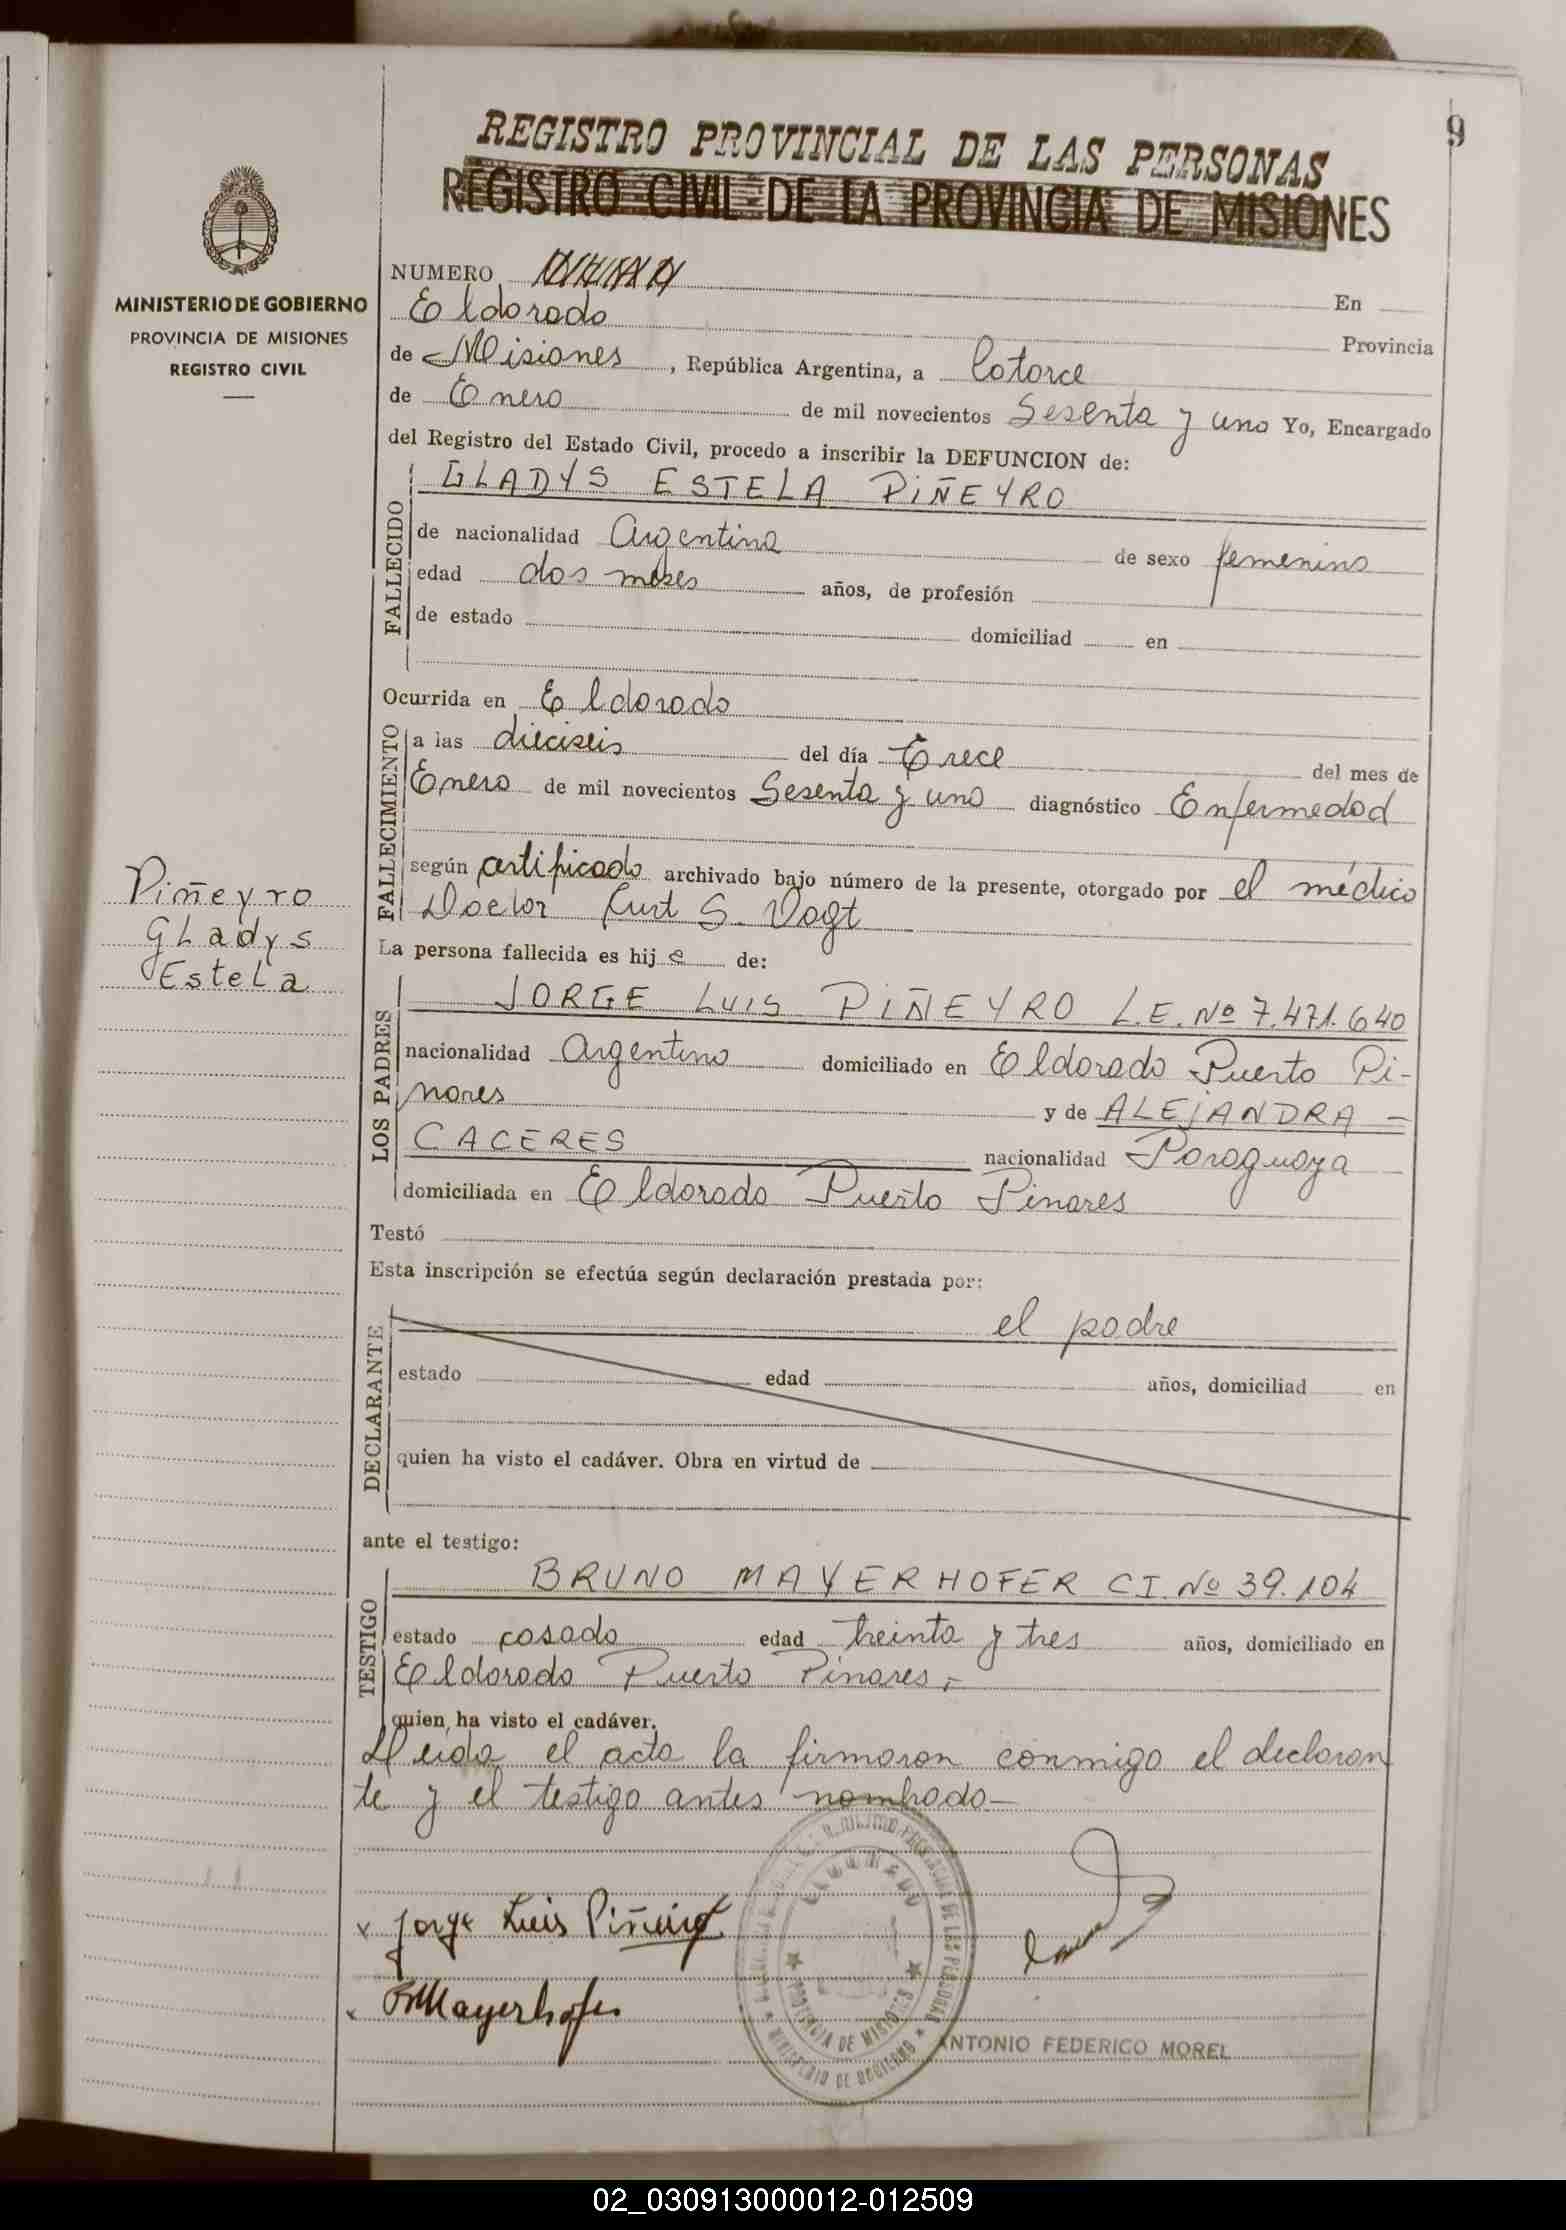 9
REGISTRO PROVINCIAL DE LAS PERSONAS
REGISTRO CIVIL DE LA PROVINCIA DE MISIONES
MINISTERIO DE GOBIERNO
PROVINCIA DE MISIONES
REGISTRO CIVIL
NUMERO En
Eldorado Provincia
de Misiones, República Argentina, a Catorce
de Enero de mil novecientos Sesenta y uno Yo, Encargado
del Registro del Estado Civil, procedo a inscribir la DEFUNCION de:
FALLECIDO
GLADYS ESTELA PIÑEYRO
de nacionalidad Argentina de sexo femenino
edad dos meses años, de profesión
de estado domiciliad en
Ocurrida en Eldorado
FALLECIMIENTO
a las dieciseis del día Trece del mes de
Enero de mil novecientos Sesenta y uno diagnóstico Enfermedad
según certificado archivado bajo número de la presente, otorgado por el médico
Doctor Kurt S. Vogt
Piñeyro
Gladys
Estela
La persona fallecida es hij a de:
LOS PADRES
JORGE LUIS PIÑEYRO L.E. Nº 7.471.640
nacionalidad Argentino domiciliado en Eldorado Puerto Pi-
nares y de ALEJANDRA -
CACERES nacionalidad Paraguaya
domiciliada en Eldorado Puerto Pinares
Testó
Esta inscripción se efectúa según declaración prestada por:
DECLARANTE
el padre
estado edad años, domiciliad en
quien ha visto el cadáver. Obra en virtud de
ante el testigo:
TESTIGO
BRUNO MAYERHOFER C.I. Nº 39.104
estado casado edad treinta y tres años, domiciliado en
Eldorado Puerto Pinares.-
quien ha visto el cadáver.
Leida el acta la firmaron conmigo el declaran
te y el testigo antes nombrado-
x Jorge Luis Piñeiro
x BMayerhofer
PROVINCIA DE MISIONES
MINISTERIO DE GOBIERNO
ANTONIO FEDERICO MOREL
02_030913000012-012509